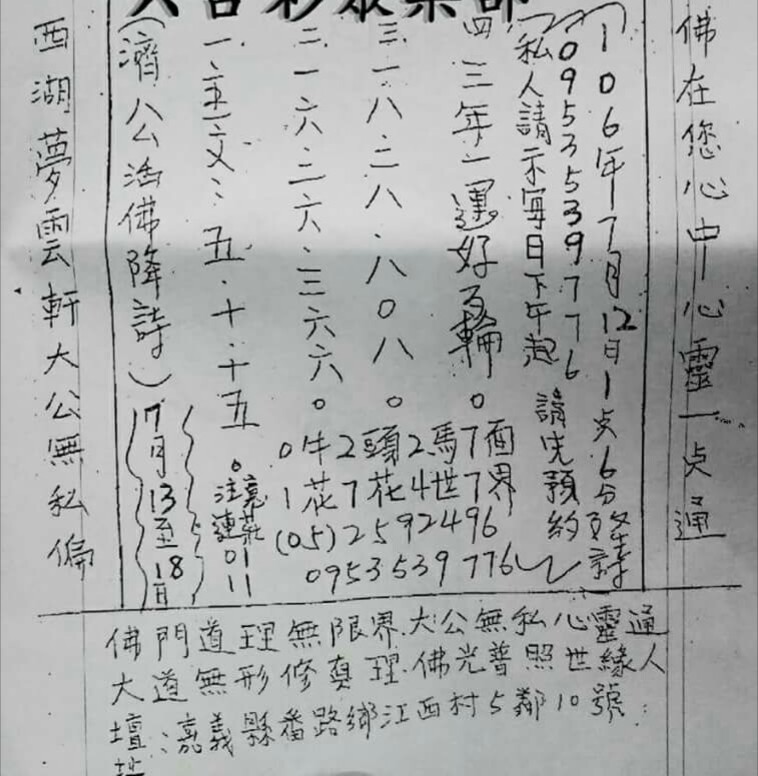 佛在您心中心靈一点通
(106年7月12日1点6分降詩
0953539776
(私人請示每日下午起 請先預約)
四.三年二運好引輪。
三.一八.二八.八0八。
二.一六.二六.三六六。
一.五.五.十.十五。
(濟公活佛降詩)
0牛2頭2馬7面
1花7花4世7界
(05)2592496
0953539776
注意莊
連01
11
7月13至18日
西湖夢雲軒大公無私偏
佛門道理無限界.大公無私心靈通
大道無形修真理.佛光普照世緣人
壇:嘉義縣番路鄉江西村5鄰10號: